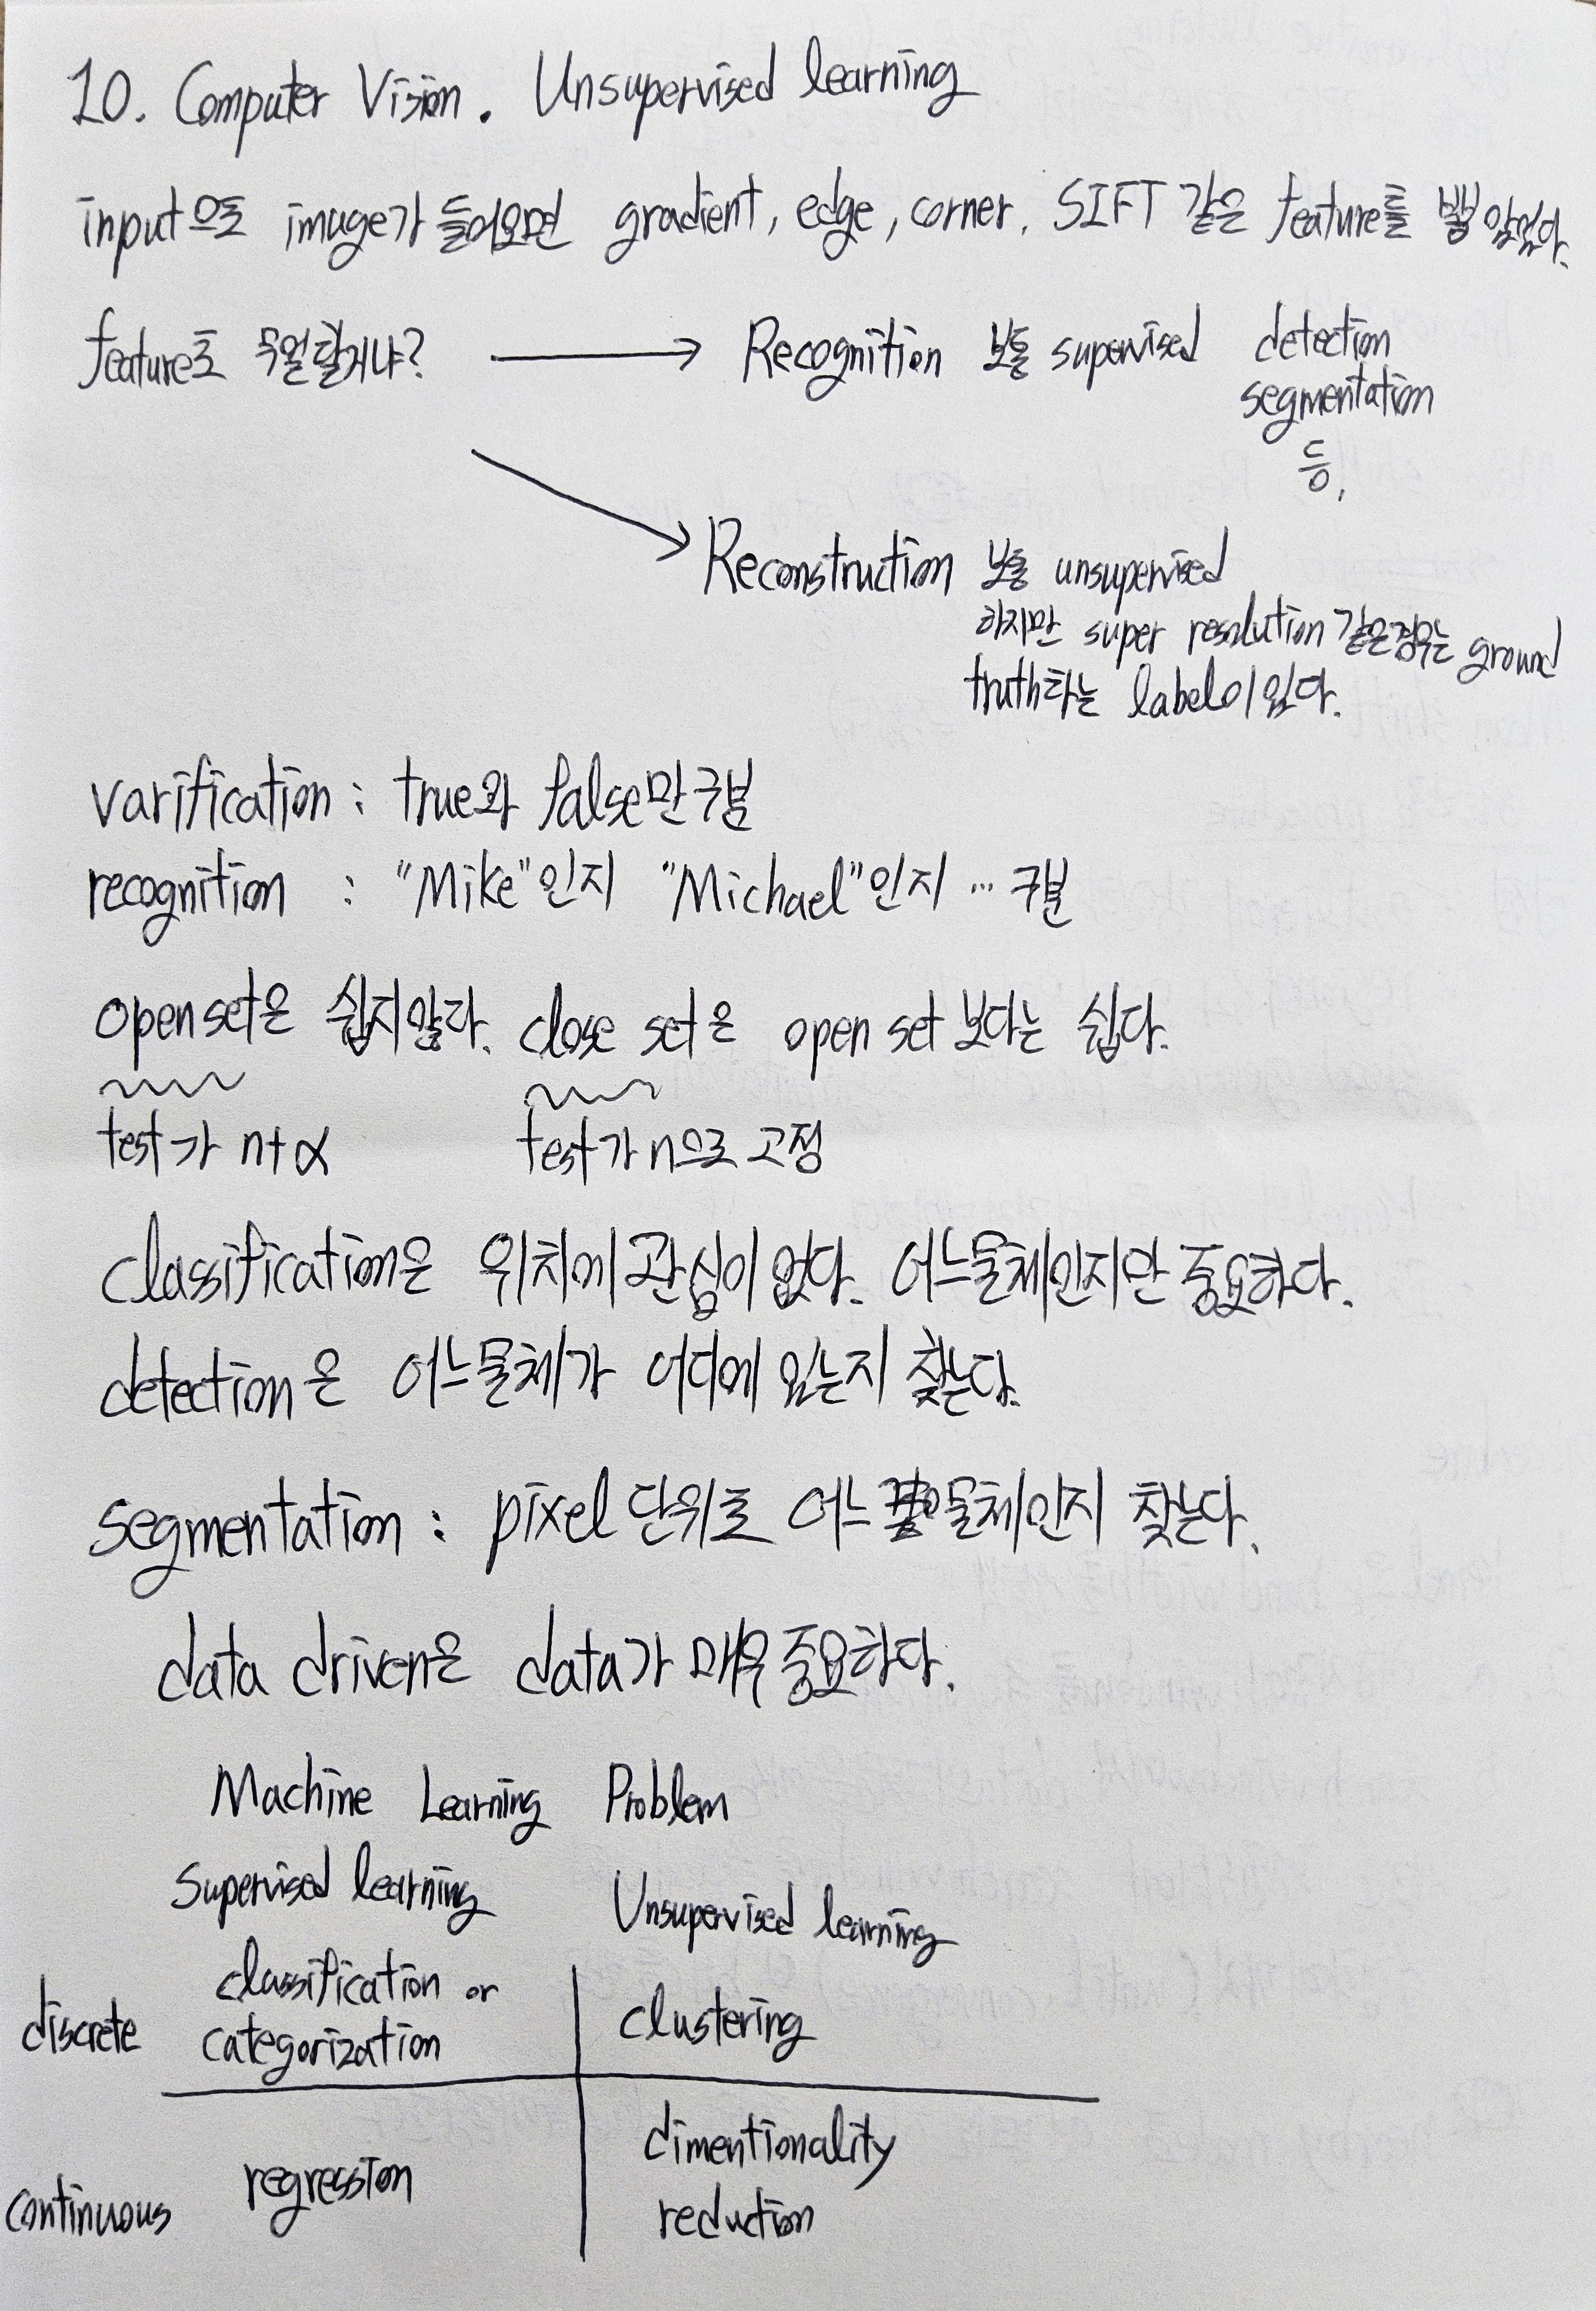 10. Computer Vision. Unsupervised learning
input으로 image가 들어오면 gradient, edge, corner, SIFT 같은 feature를 뽑았었다.
feature로 무얼할거냐? → Recognition 보통 supervised detection
segmentation
등,
Reconstruction 보통 unsupervised
하지만 super resolution 같은경우는 ground
truth하는 label이 있다.
varification : true와 false만 구분
recognition : "Mike"인지 "Michael"인지 ... 구분
open set은 쉽지않다. close set은 open set 보다는 쉽다.
test가 n+α test가 n으로 고정
classification은 위치에 관심이 없다. 어느물체인지만 중요하다.
detection은 어느물체가 어디에 있는지 찾는다.
segmentation : pixel 단위로 어느 물체인지 찾는다.
data driven은 data가 매우 중요하다.
Machine Learning Problem
Supervised learning Unsupervised learning
classification or
discrete categorization clustering
dimentionality
continuous regression reduction